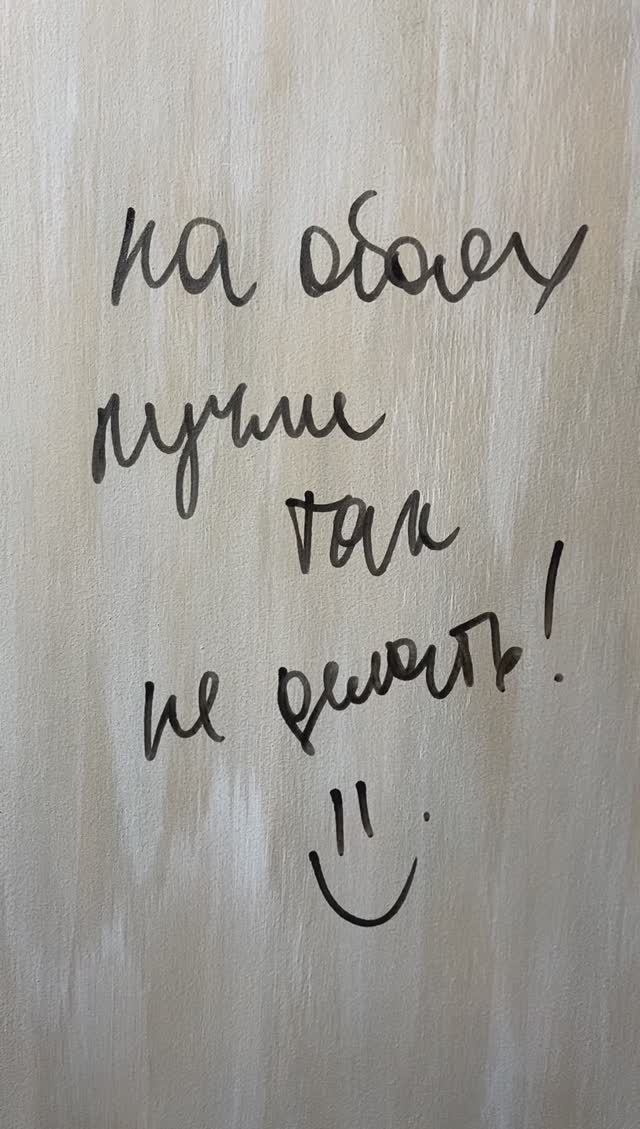 на обоях
лучше
так
не делать!